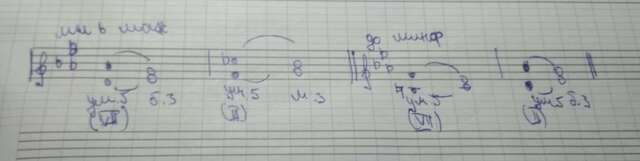 ми ♭ маж
до минор
ум.5 б.3 ум.5 м3 ум.5 ум5 б.3
(VII) (II) (VII) (II)